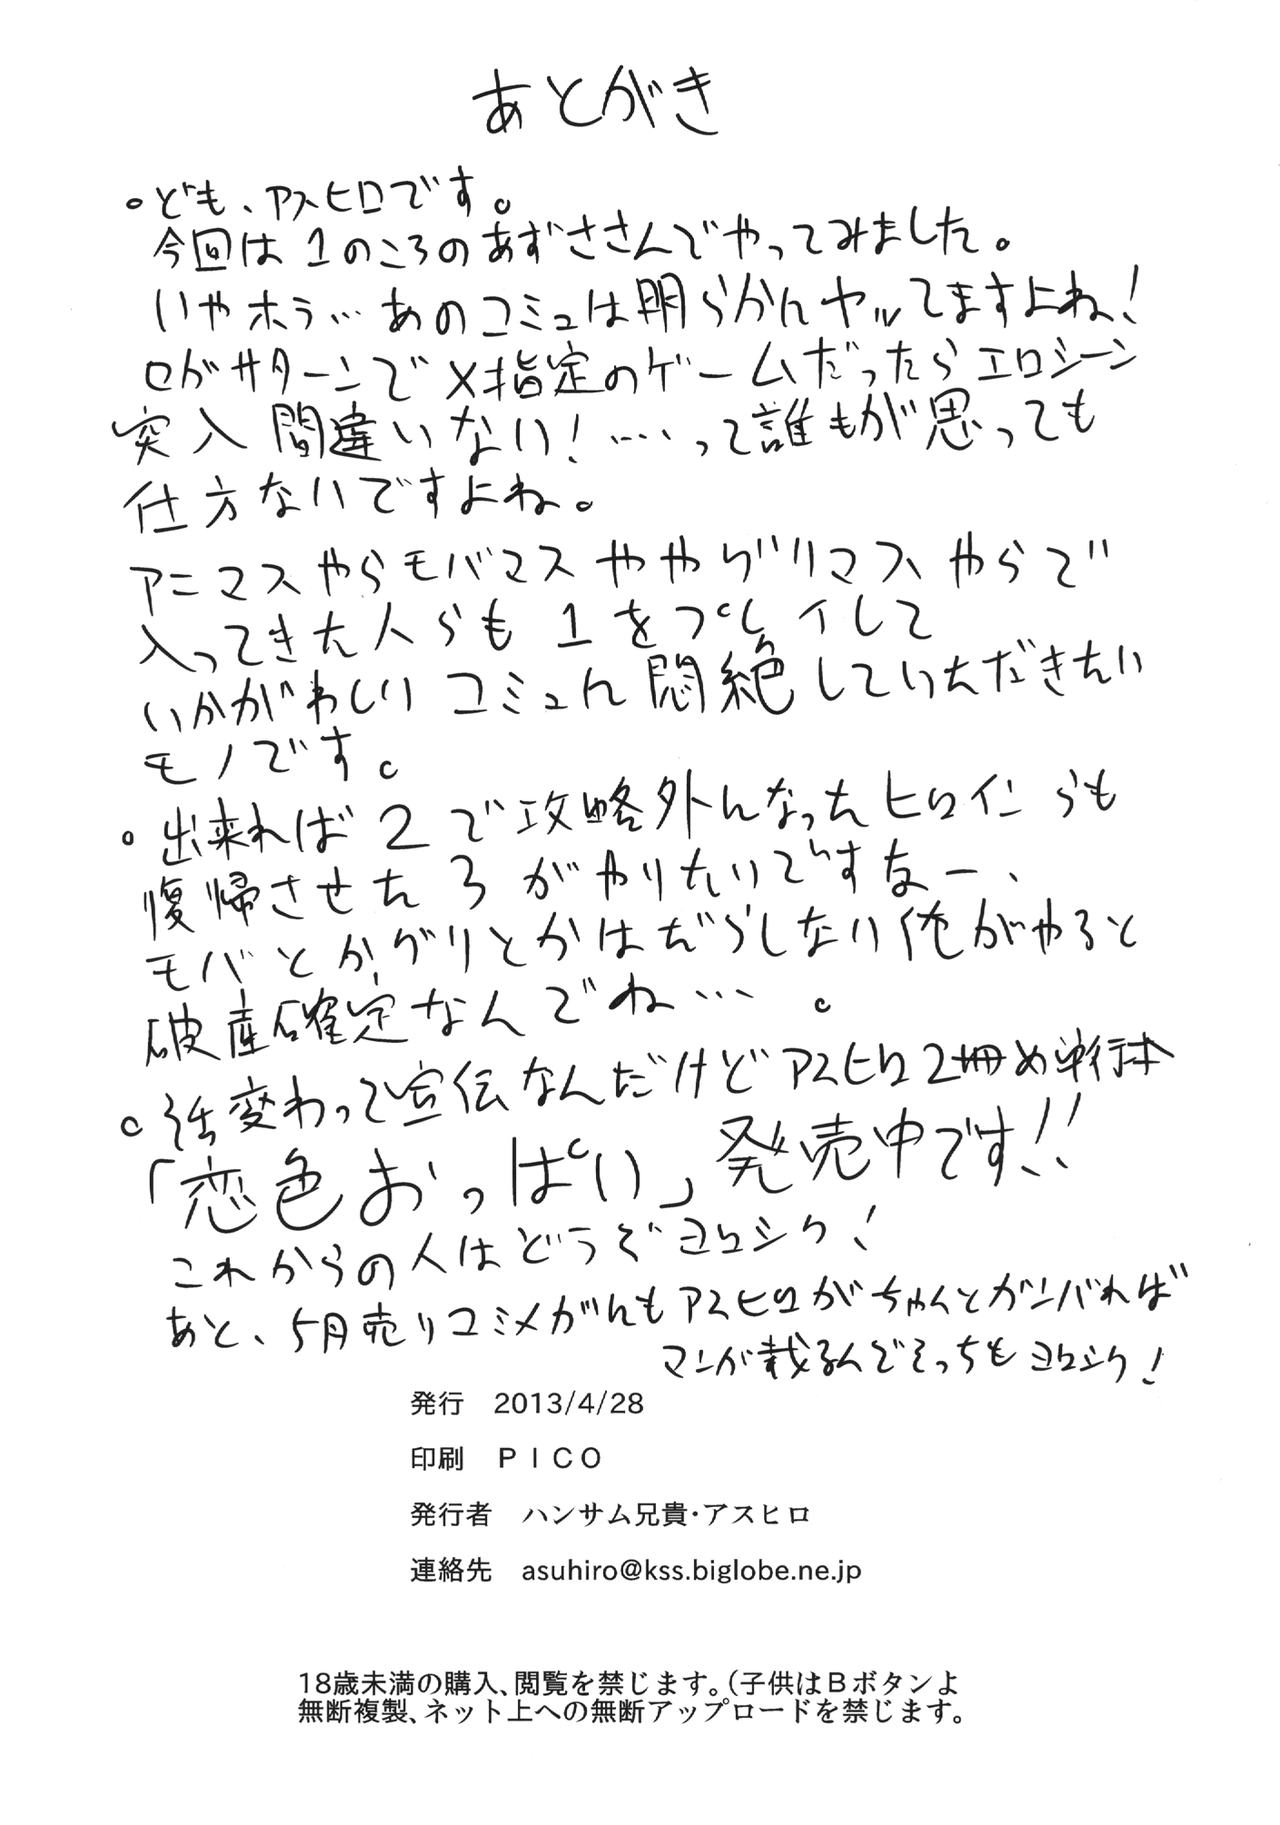 あとがき
。ども、アスヒロです。
今回は1のころのあずささんでやってみました。
いやホラ…あのコミュは明らかにヤってますよね!
セガサターンでX指定のゲームだったらエロシーン
突入間違いない!……って誰もが思っても
仕方ないですよね。
アニマスやらモバマスややグリマスやらで
入ってきた人らも1をプレイして
いかがわしいコミュに悶絶していただきたい
モノです。
。出来れば2で攻略外になったヒロインらも
復帰させた3がやりたいですなー、
モバとかグリとかはだらしない俺がやると
破産確定なんでね…。
。話変わって宣伝なんだけどアスヒロ2冊め単行本
「恋色おっぱい」発売中です!!
これからの人はどうぞヨロシク!
あと、5月売りコミメガにもアスヒロがちゃんとガンバれば
マンガ載るんでそっちもヨロシク!
発行 2013/4/28
印刷 PICO
発行者 ハンサム兄貴・アスヒロ
連絡先 asuhiro@kss.biglobe.ne.jp
18歳未満の購入、閲覧を禁じます。(子供はBボタンよ
無断複製、ネット上への無断アップロードを禁じます。